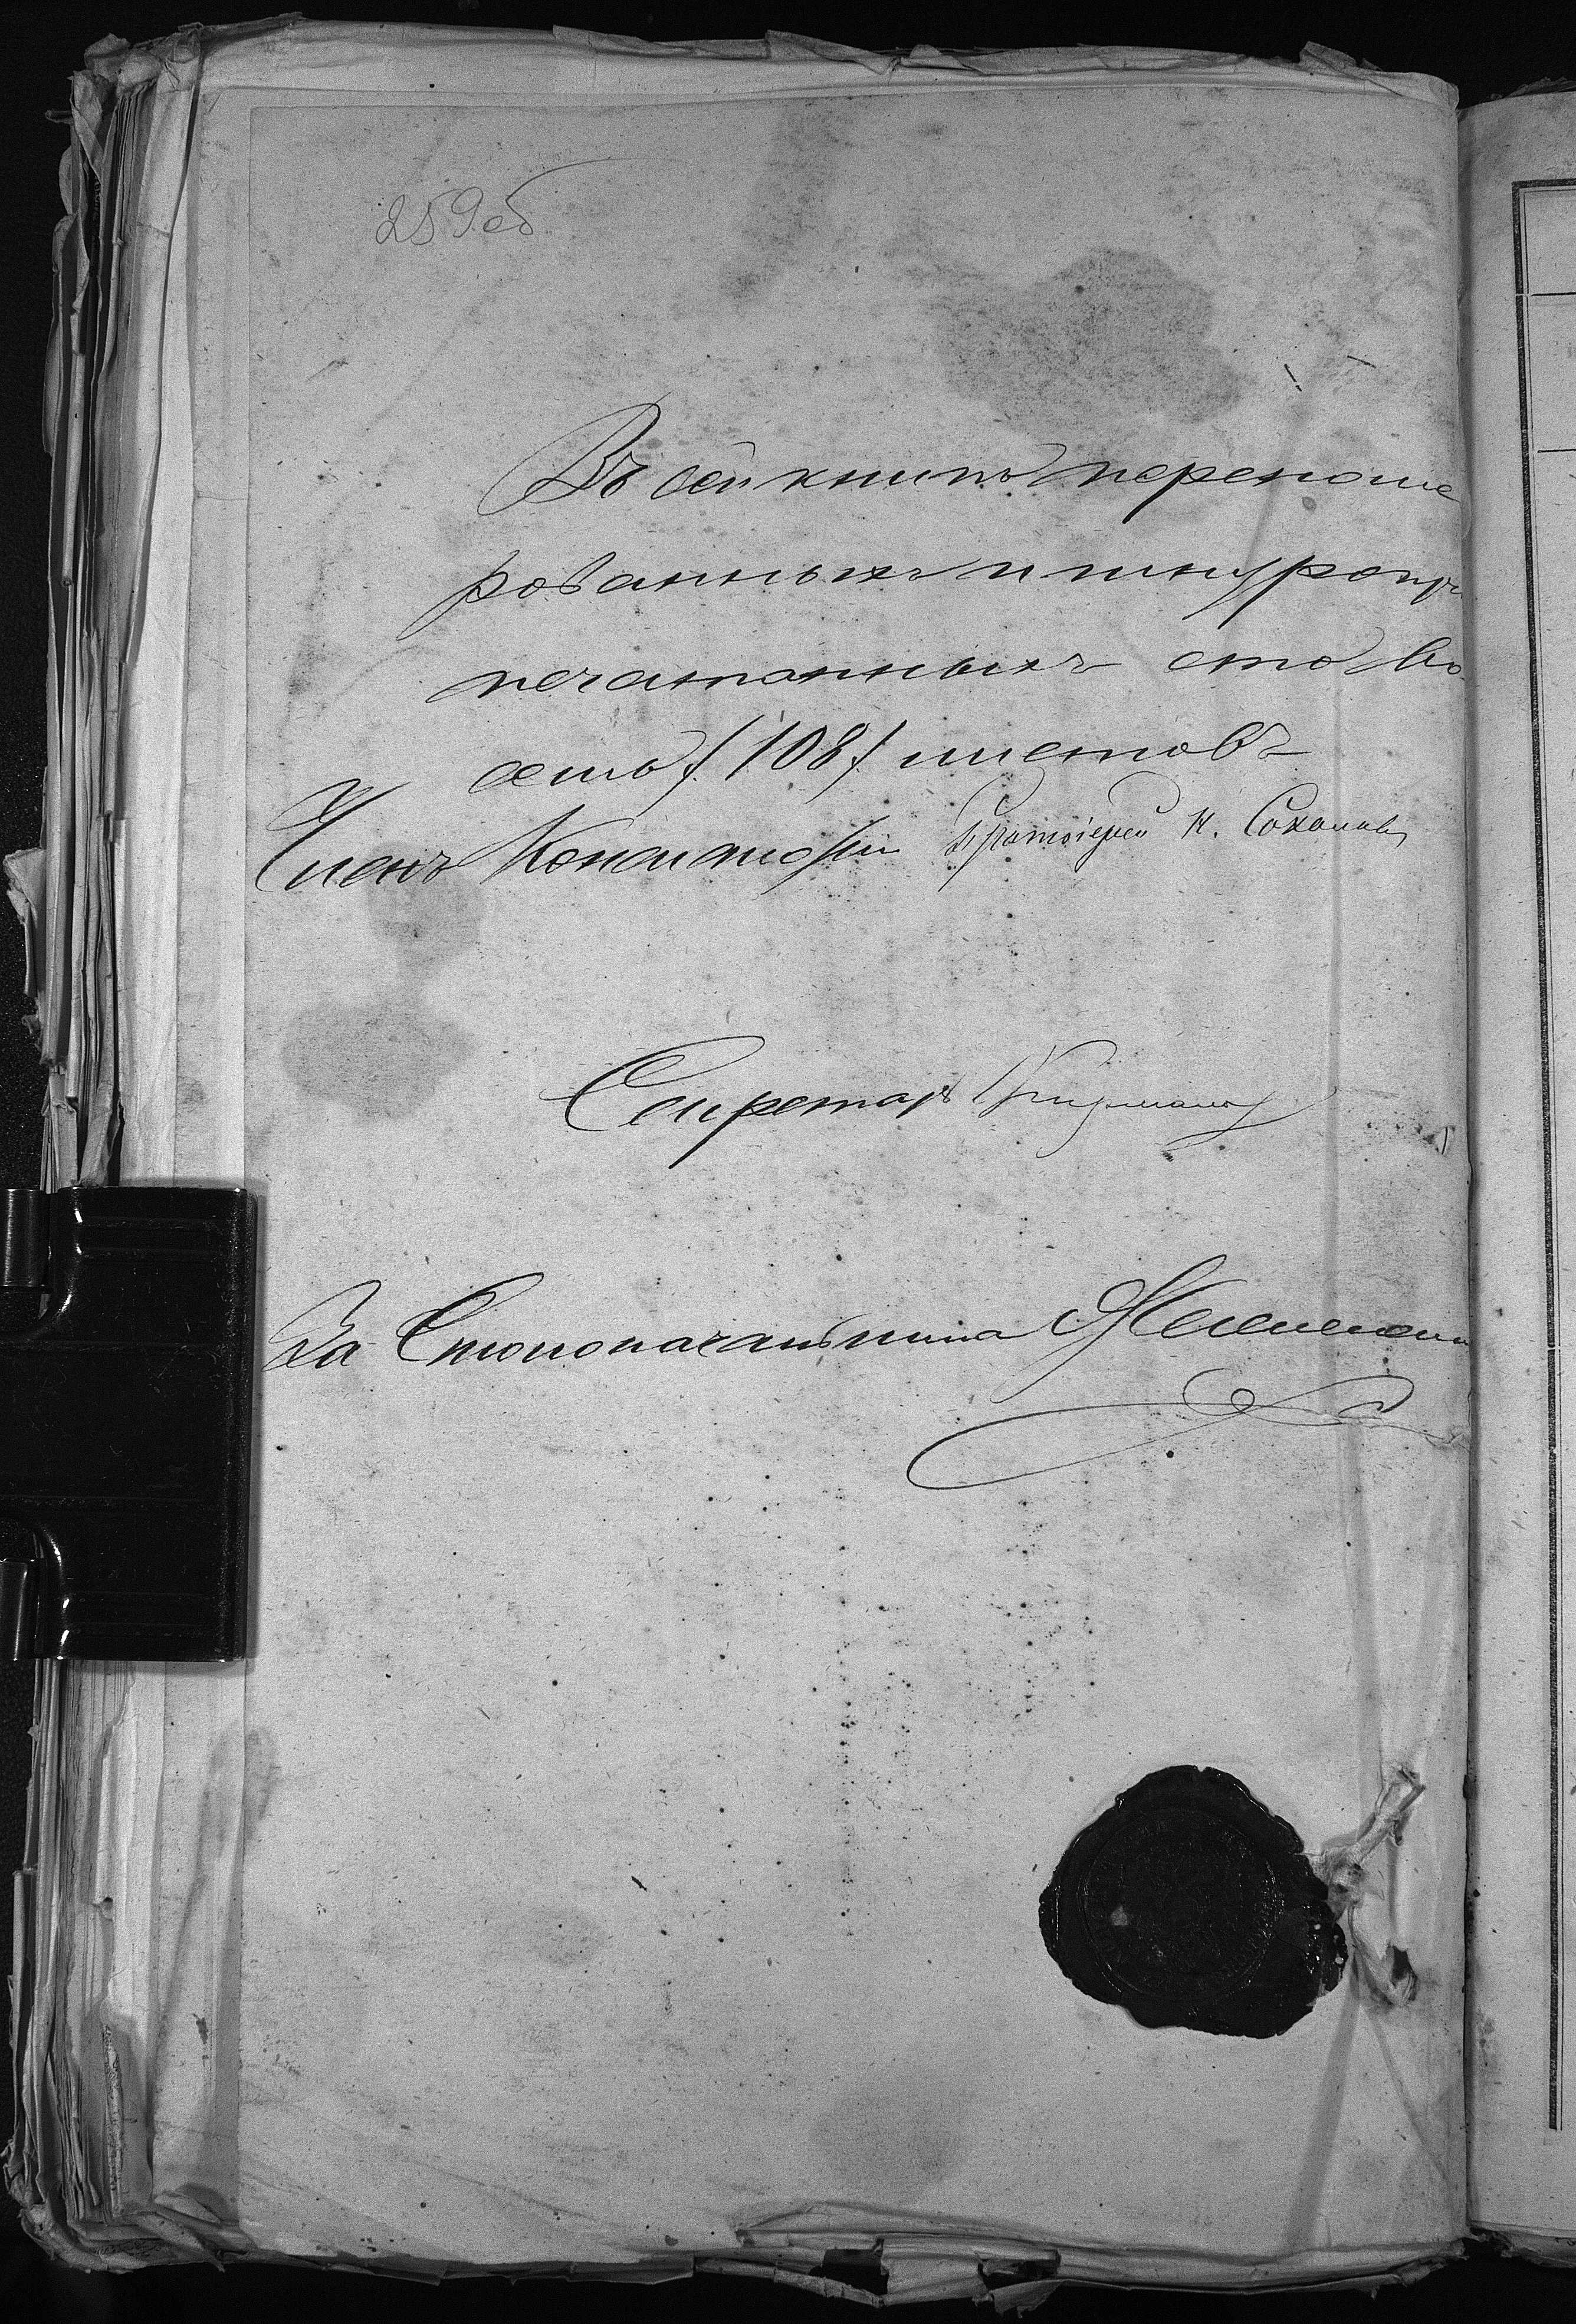 259об
Въ сей книгѣ перенуме
рованныхъ и шнуропри
печатанныхъ сто во
семь (108) листовъ
Членъ Консисторіи Протоіерей Н.
Секретарь
За Столоначальника